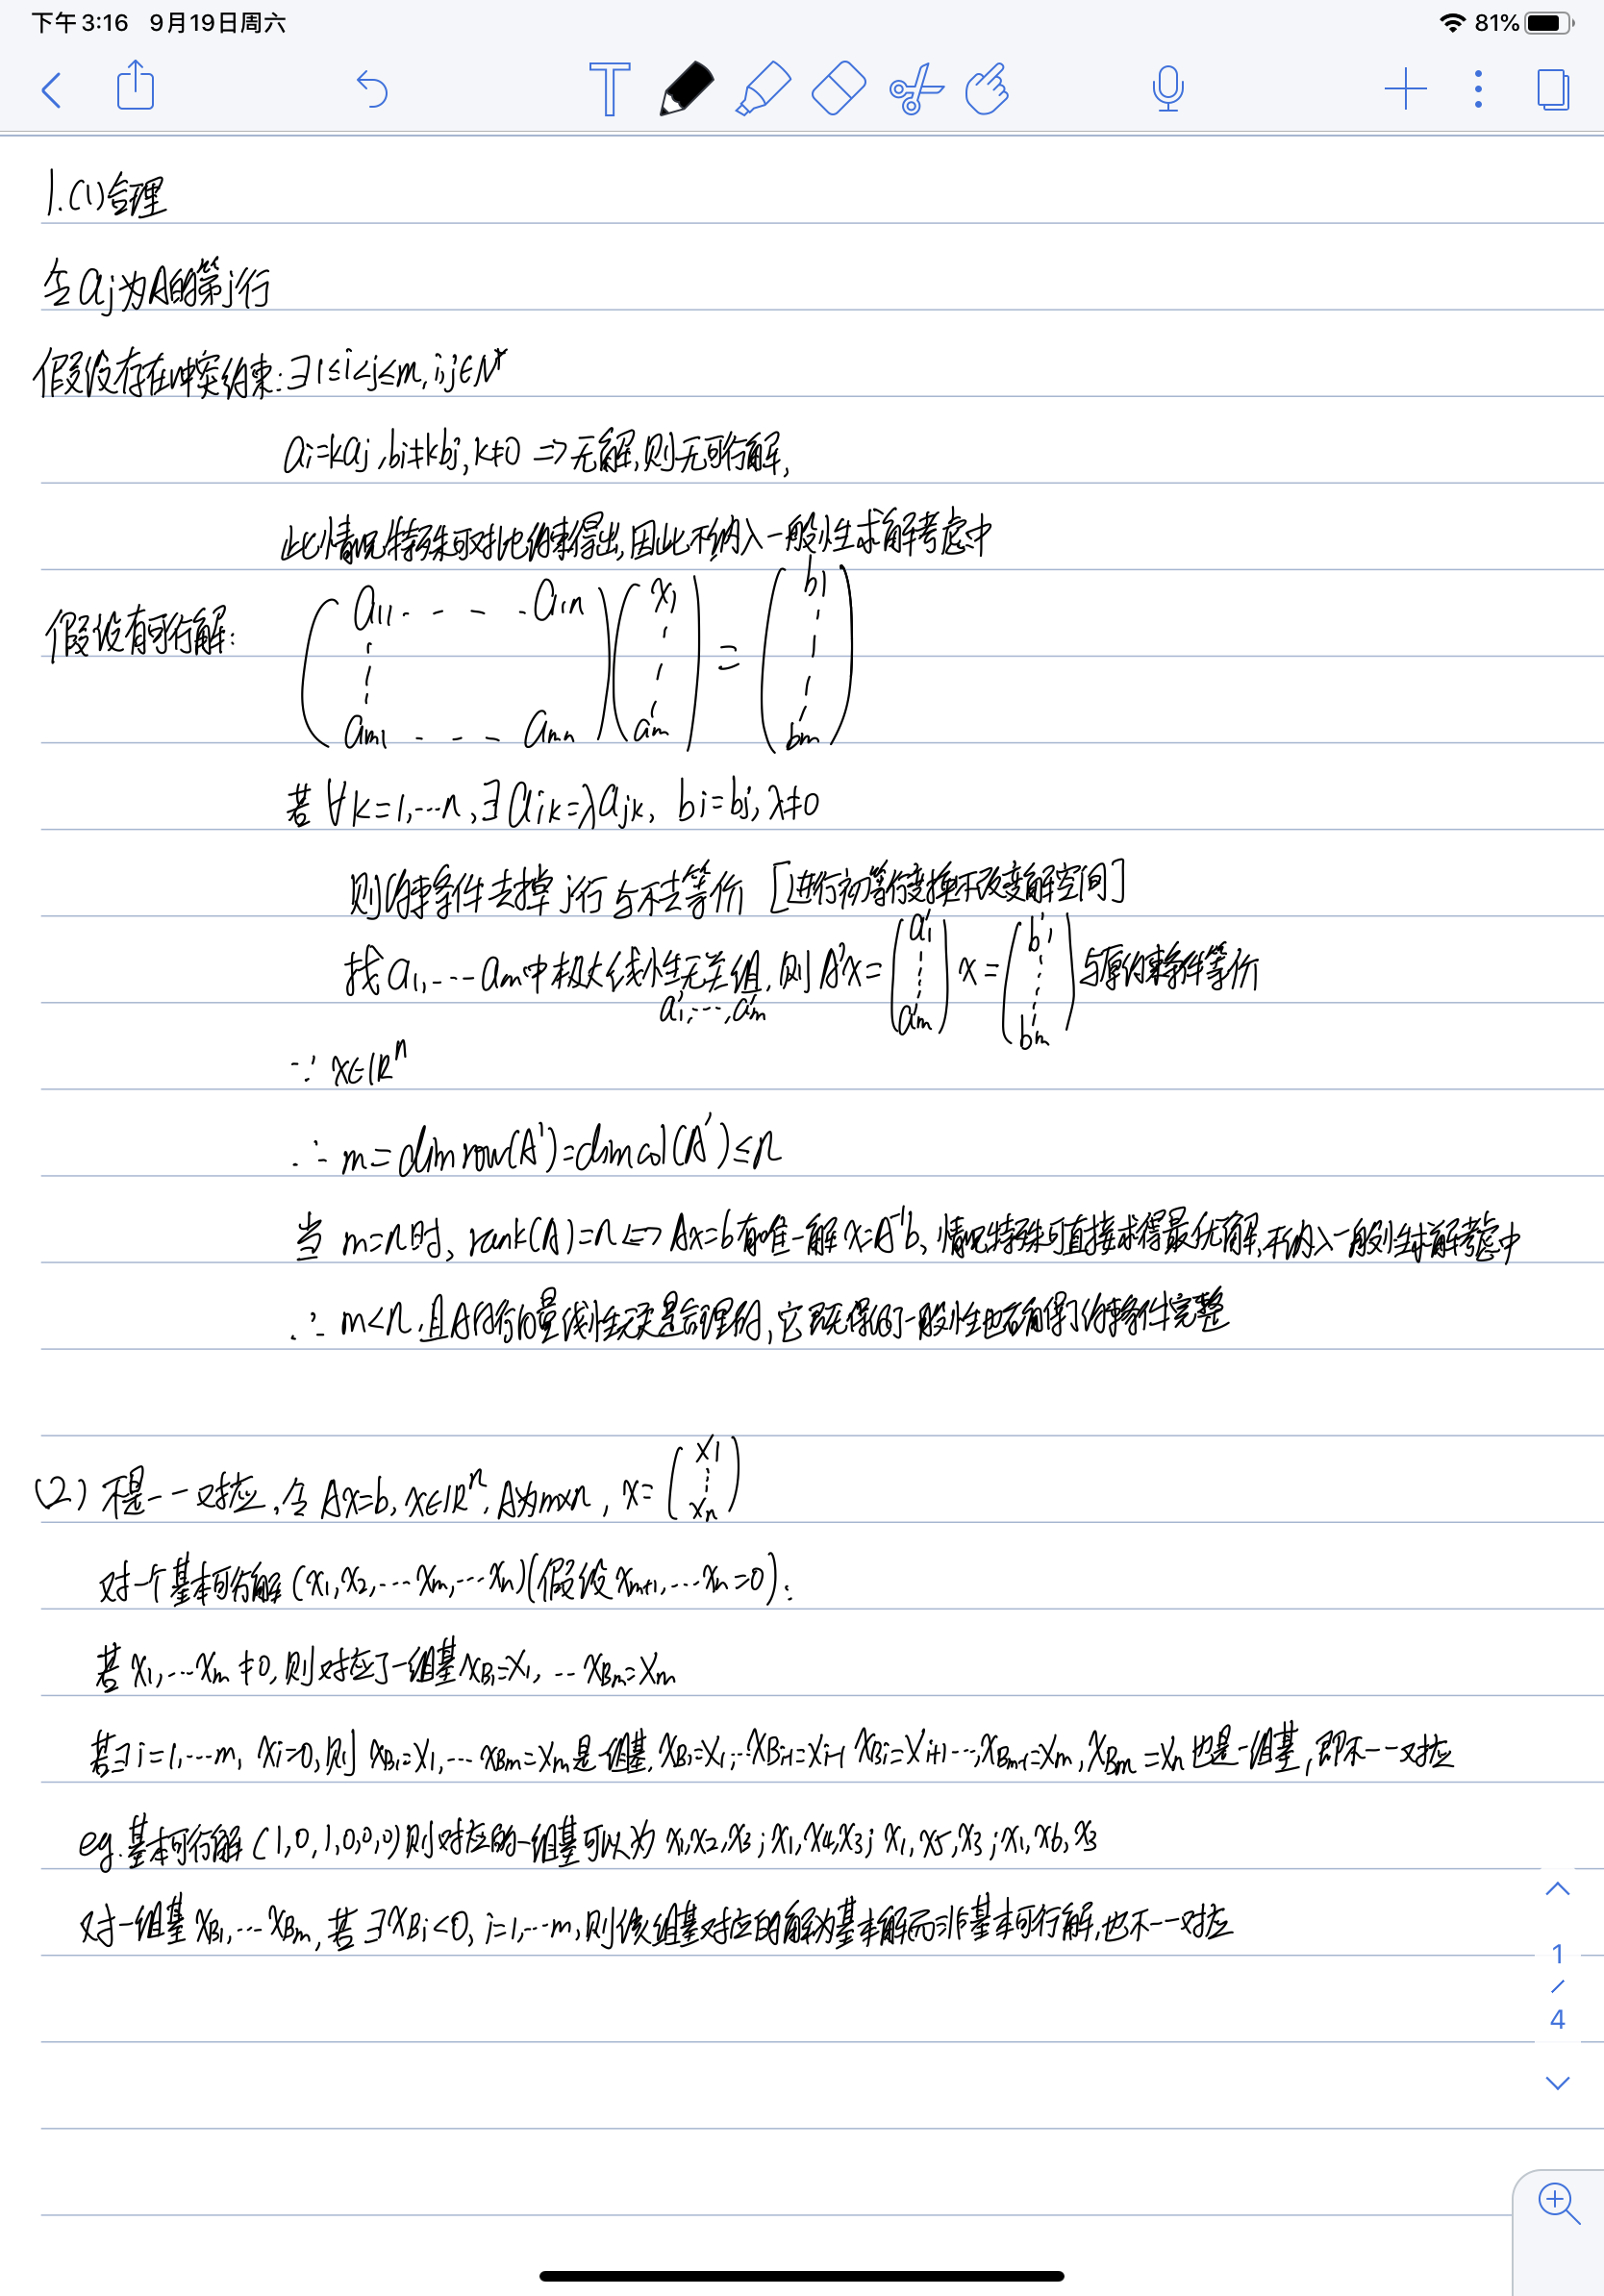 下午3:16 9月19日周六 81%
T
1.(1)合理
令aj为A的第j行
假设存在冲突约束:∃1≤i<j≤m,i,j∈N*
ai=kaj,bi≠kbj,k≠0 => 无解,则无可行解,
此情况特殊可对比约束得出,因此不纳入一般性求解考虑中
假设有可行解: (a11 - - - a1n ⋮ am1 - - - amn)(x1 ⋮ am) = (b1 ⋮ bm)
若 ∀k=1,…n,∃aik=λajk, bi=bj,λ≠0
则约束条件去掉j行与不去等价 [进行初等行变换不改变解空间]
找a1,…am中极大线性无关组,则A'x=(a1' ⋮ am')x=(b1' ⋮ bm')与原约束条件等价
a1',…,am'
∵ x∈ℝⁿ
∴ m=dim row(A')=dim col(A')≤n
当 m=n时,rank(A)=n <=> Ax=b有唯一解x=A⁻¹b,情况特殊可直接求得最优解,不纳入一般性求解考虑中
∴ m<n,且A的行向量线性无关是合理的,它既保留了一般性也确保了约束条件完整
(2)不是一一对应,令Ax=b,x∈ℝⁿ,A为m×n,x=(x1 ⋮ xn)
对一个基本可行解(x1,x2,…xm,…xn)(假设xm+1,…xn=0):
若x1,…xm≠0,则对应了一组基xB1=x1,…xBm=xm
若∃i=1,…m,xi=0,则xB1=x1,…xBm=xm是一组基,xB1=x1,…xBi-1=xi-1 xBi=xi+1…,xBm-1=xm,xBm=xn也是一组基,即不一一对应
eg.基本可行解(1,0,1,0,0,0)则对应的一组基可以为x1,x2,x3;x1,x4,x3;x1,x5,x3;x1,x6,x3
对一组基xB1,…xBm,若∃xBi<0,i=1,…m,则该组基对应的解为基本解而非基本可行解,也不一一对应
1
/
4